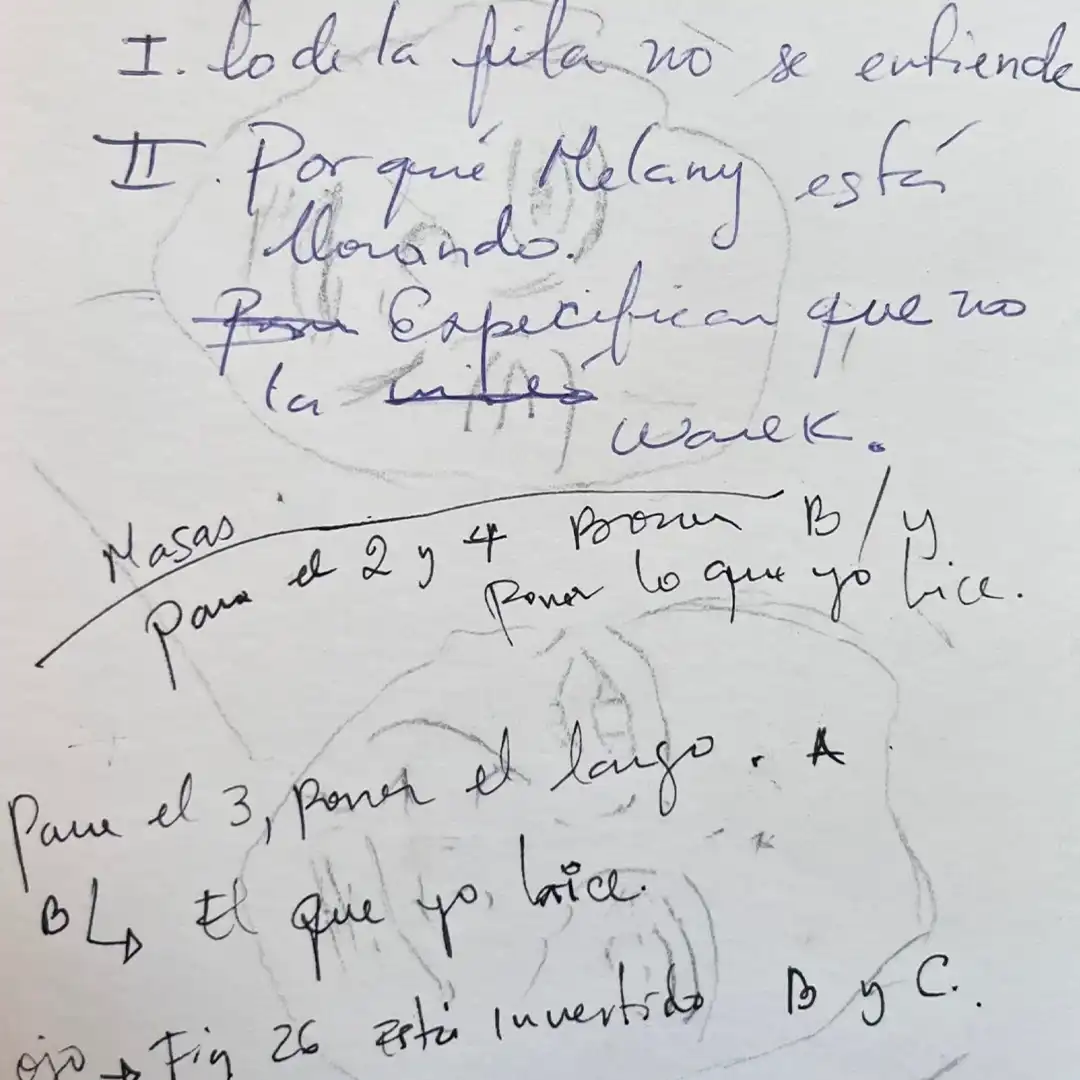 I. lo de la fila no se entiende
II. Por qué Melany está
llorando.
Especifican que no
la
Masas
para el 2 y 4 Borrar B / y
poner lo que yo hice.
Para el 3, poner el largo. A
B↳ El que yo hice.
ojo → Fig 26 Está invertido B y C.